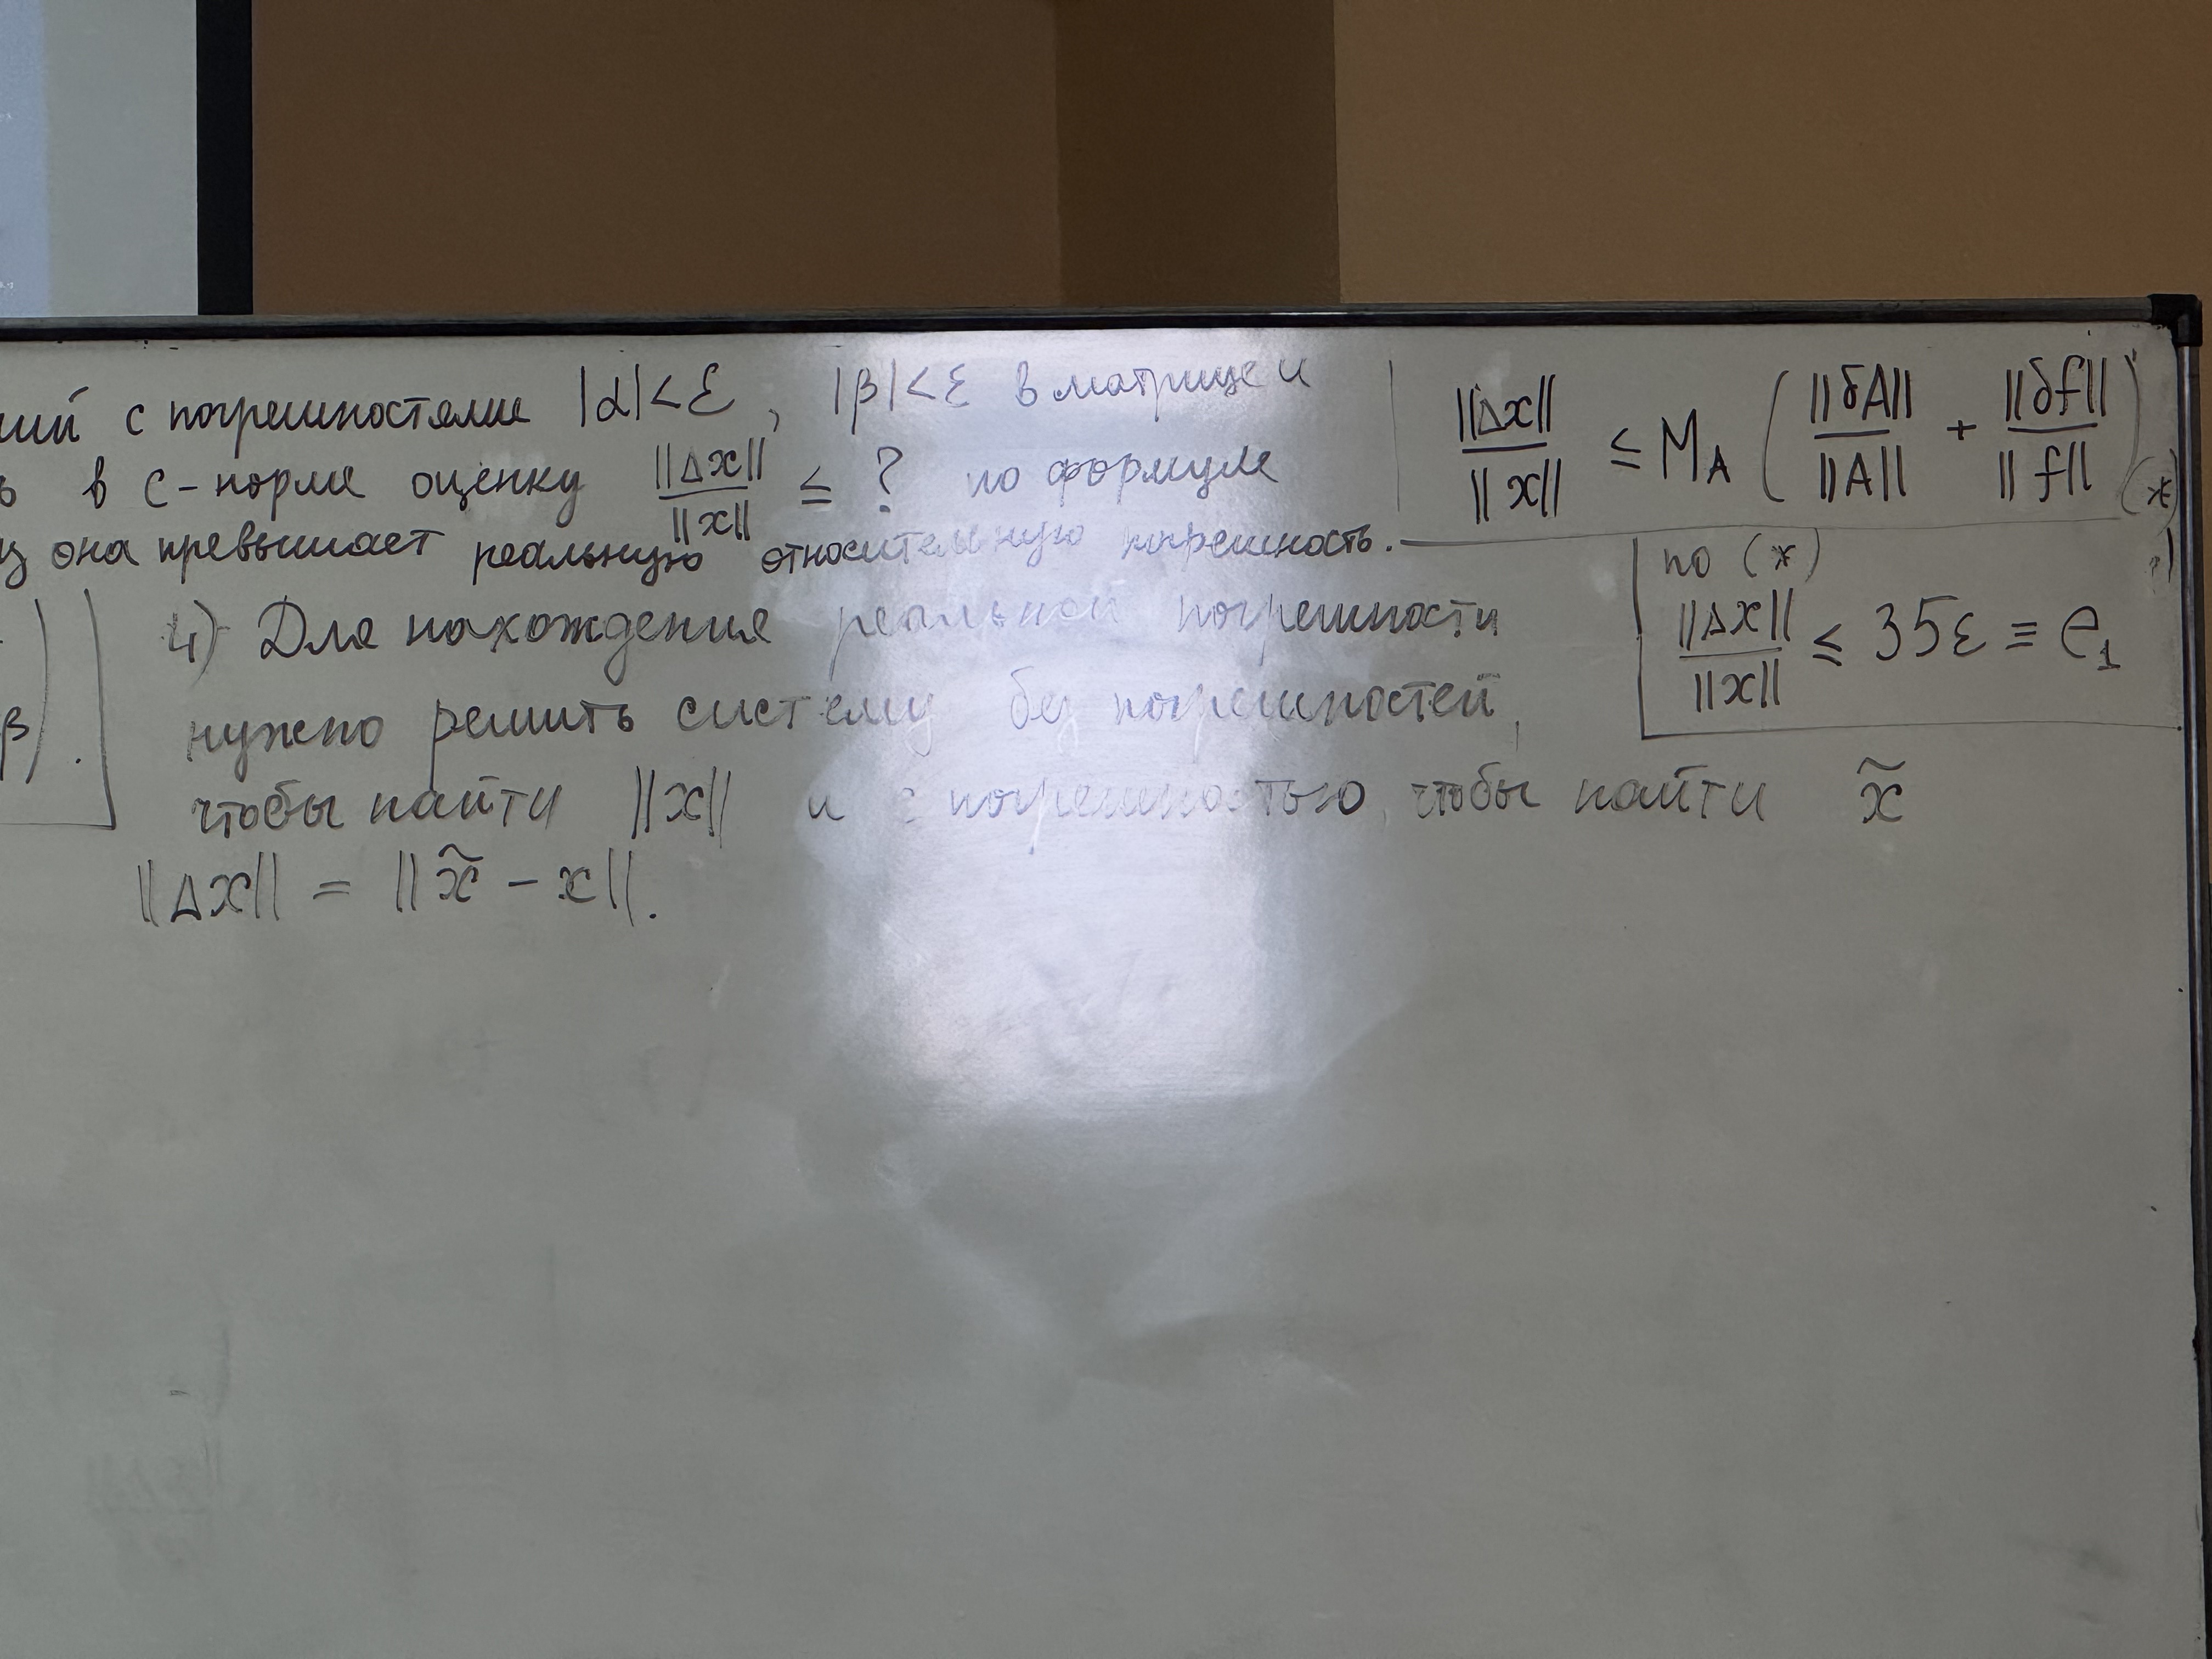 ший с погрешностями |α|<ε, |β|<ε в матрице и
в C-норме оценку ||Δx||/||x|| ≤ ? по формуле
она превышает реальную относительную погрешность.
||Δx||/||x|| ≤ M_A (||δA||/||A|| + ||δf||/||f||) (*)
по (*)
||Δx||/||x|| ≤ 35ε ≡ e_1
β) .
4) Для нахождения реальной погрешности
нужно решить систему без погрешностей,
чтобы найти ||x|| и с погрешностью, чтобы найти x̃
||Δx|| = ||x̃ - x||.